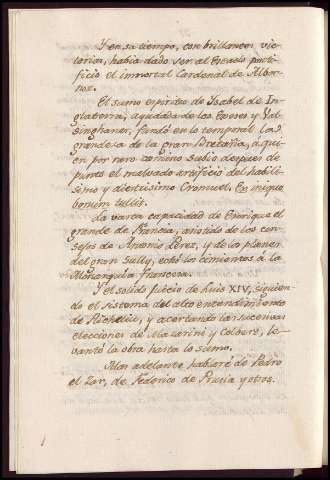 Y en su tiempo, con brillantes vic-
torias, habia dado ser al Estado ponti-
ficio el inmortal Cardenal de Albor-
noz.
El sumo espiritu de Isabel de In-
glaterra, ayudada de los Exeses y Val-
singhames, fundó en lo temporal la
grandesa de la gran Bretaña, a quien
por nero camino subio despues de
punto el malvado artificio del habili-
simo y diertisimo Cromuel, Ex iniquo
bonum tulir.
La vasta capacidad de Enrique el
grande de Francia, asistido de los con-
sejos de Antonio Perez, y de los planes
del gran Sully, echó los cimientos á la
Monarquia Francesa.
Y el solido juicio de Luis XIV, siguien-
do el sistema del alto entendimiento
de Richelieu, y acertando las sucesivas
elecciones de Mazarini y Colbert, le-
vantó la obra hasta lo sumo.
Mas adelante hablaré de Pedro
el Zar, de Federico de Prusia y otros.